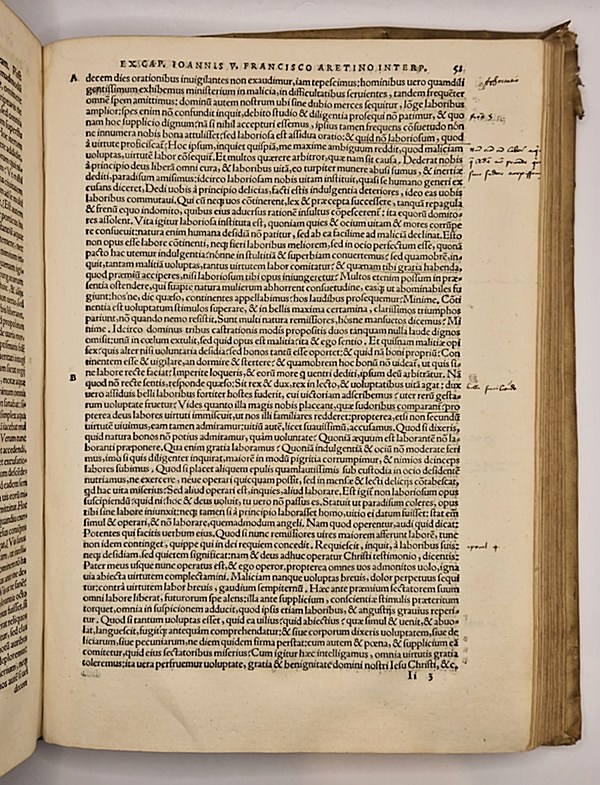 EX CAP. IOANNIS V. FRANCISCO ARETINO INTERP. 51
A decem dies orationibus inuigilantes non exaudimur, iam tepescimus: hominibus uero quamdiu
gentissimum exhibemus ministerium in malicia, in difficultatibus seruientes, tandem frequēter
omnē spem amittimus: dominū autem nostrum ubi sine dubio merces sequitur, lōge laboribus
amplior: spes enim nō confundit inquit, debito studio & diligentia prosequi nō patimur, & quo
nam hoc supplicio dignum: nā si nihil accepturi essemus, ipsius tamen frequens cōsuetudo nōn
ne innumera nobis bona attulisset: sed laboriosa est assidua oratio: & quid nō laboriosum, quod
à uirtute proficiscat: Hoc ipsum, inquiet quispiā, me maxime ambiguum reddit, quod maliciam
uoluptas, uirtutē labor cōsequit. Et multos quærere arbitror, quæ nam sit causa. Dederat nobis
à principio deus liberā omni cura, & laboribus uitā, eo turpiter munere abusi sumus, & inertiæ
dediti, paradisum amisimus: ideirco laboriosam nobis uitam instituit, quasi se humano generi ex
cusans diceret, Dedi uobis à principio delicias, facti estis indulgentia deteriores, ideo eas uobis
laboribus commutaui. Qui cū neq; uos cōtinerent, lex & præcepta successere, tanquā repagula
& frenū equo indomito, quibus eius aduersus rationē insultus cōpescerent: ita equorū domito⸗
res assolent. Vita igitur laboriosa instituta est, quoniam quies & ocium uitam & mores corrūpe
re consueuit: natura enim humana desidiā nō patitur, sed ab ea facilime ad maliciā declinat. Esto
non opus esse labore cōtinenti, neq; fieri laboribus meliorem, sed in ocio perfectum esse, quonā
pacto hac utemur indulgentia: nōnne in stultitiā & superbiam conuertemus: sed quamobrē, in⸗
quit, tantam malitiā uoluptas, tantus uirtutem labor comitatur: & quænam tibi gratia habenda,
quod præmiū acciperes, nisi laboriosum tibi opus iniungeretur: Multos etenim possum in præ⸗
sentia ostendere, qui suapte natura mulierum abhorrent consuetudine, easq; ut abominabiles fu
giunt: hos'ne, dic quæso, continentes appellabimus: hos laudibus prosequemur: Minime, Cōti
nentia est uoluptatum stimulos superare, & in bellis maxima certamina, clarissimos triumphos
pariunt, nō quando nemo resistit. Sunt multi natura remissiores, hosne mansuetos dicemus: Mi
nime. Ideirco dominus tribus castrationis modis propositis duos tanquam nulla laude dignos
omisit: unū in cœlum extulit, sed quid opus est malitia: ita & ego sentio. Et quisnam malitiæ opi
fex: quis alter nisi uoluntaria desidia: sed bonos tantū esse oportet: & quid nā boni propriū: Con
tinentem esse & uigilare, an dormire & stertere: & quamobrem hoc bonū nō uideaf, ut quis si⸗
ne labore recte faciat: Imperite loqueris, & eorū more q uentri dediti, ipsum deū arbitrātur. Nā
B quod nō recte sentis, responde quæso: Sit rex & dux, rex in lecto, & uoluptatibus uitā agat: dux
uero assiduis belli laboribus fortiter hostes fuderit, cui uictoriam adscribemus: uter rerū gesta⸗
rum uoluptate fruetur: Vides quanto illa magis nobis placeant, quæ sudoribus comparant: pro
pterea deus labores uirtuti immiscuit, ut nos illi familiares redderet: propterea, etsi non secundū
uirtutē uiuimus, eam tamen admiramur: uitiū autē, licet suauissimū, accusamus. Quod si dixeris,
quid natura bonos nō potius admiramur, quàm uoluntate: Quonā æquum est laborantē nō la⸗
boranti præponere. Qua enim gratia laboramus: Quoniā indulgentiā & ociū nō moderate feri
mus, imò si quis diligenter inquirat, maiorē in modū pigritia corrumpimur, & nimios deinceps
labores subimus. Quod si placet aliquem epulis quamlautissimis sub custodia in ocio desidentē
nutriamus, ne exercere, néue operari quicquam possit, sed in mensæ & lecti delicijs cōtabescat,
qd hac uita miserius: Sed aliud operari est, inquies, aliud laborare. Est igit non laboriosum opus
suscipiendū: quid ni: hoc & deus uoluit, tu uero nō passus es. Statuit ut paradisum coleres, opus
tibi sine labore iniunxit: neq; tamen si à principio laborasset homo, uitio ei datum fuisset: stat em
simul & operari, & nō laborare, quemadmodum angeli. Nam quod operentur, audi quid dicat:
Potentes qui facitis uerbum eius, Quod si nunc remissiores uires maiorem afferunt laborē, tunc
non idem continget, quippe qui in dei requiem concedit. Requiescit, inquit, à laboribus suis:
neq; desidiam, sed quietem significat: nam & deus adhuc operatur Christi testimonio, dicentis:
Pater meus usque nunc operatus est, & ego operor, propterea omnes uos admonitos uolo, igna
uia abiecta uirtutem complectamini. Maliciam nanque uoluptas breuis, dolor perpetuus sequi
tur: contrà uirtutem labor breuis, gaudium sempiternū. Hæc ante præmium sectatorem suum
omni labore liberat, futurorum spe alens: illa ante supplicium, conscientiæ stimulis præteritum
torquet, omnia in suspicionem adducit, quod ipsis etiam laboribus, & angustijs grauius reperi⸗
tur. Quod si tantum uoluptas esset, quid ea uilius: quid abiectius: quæ simul & uenit, & auo⸗
lat, languescit, fugitq; antequam comprehendatur: & siue corporum dixeris uoluptatem, siue de
liciarum, siue pecuniarum: ne diem quidem firma perstat: cum autem & pœna, & supplicium eā
comitetur, quid eius sectatoribus miserius: Cum igitur hæc intelligamus, omnia uirtutis gratia
toleremus: ita uera perfruemur uoluptate, gratia & benignitate domini nostri Iesu Christi, & c,
Ii 3